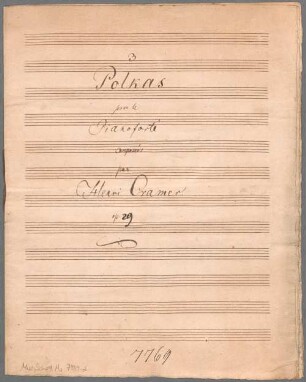 3
Polkas
pour le
Pianoforte
composées
par
Henri Cramer
op 29
7769